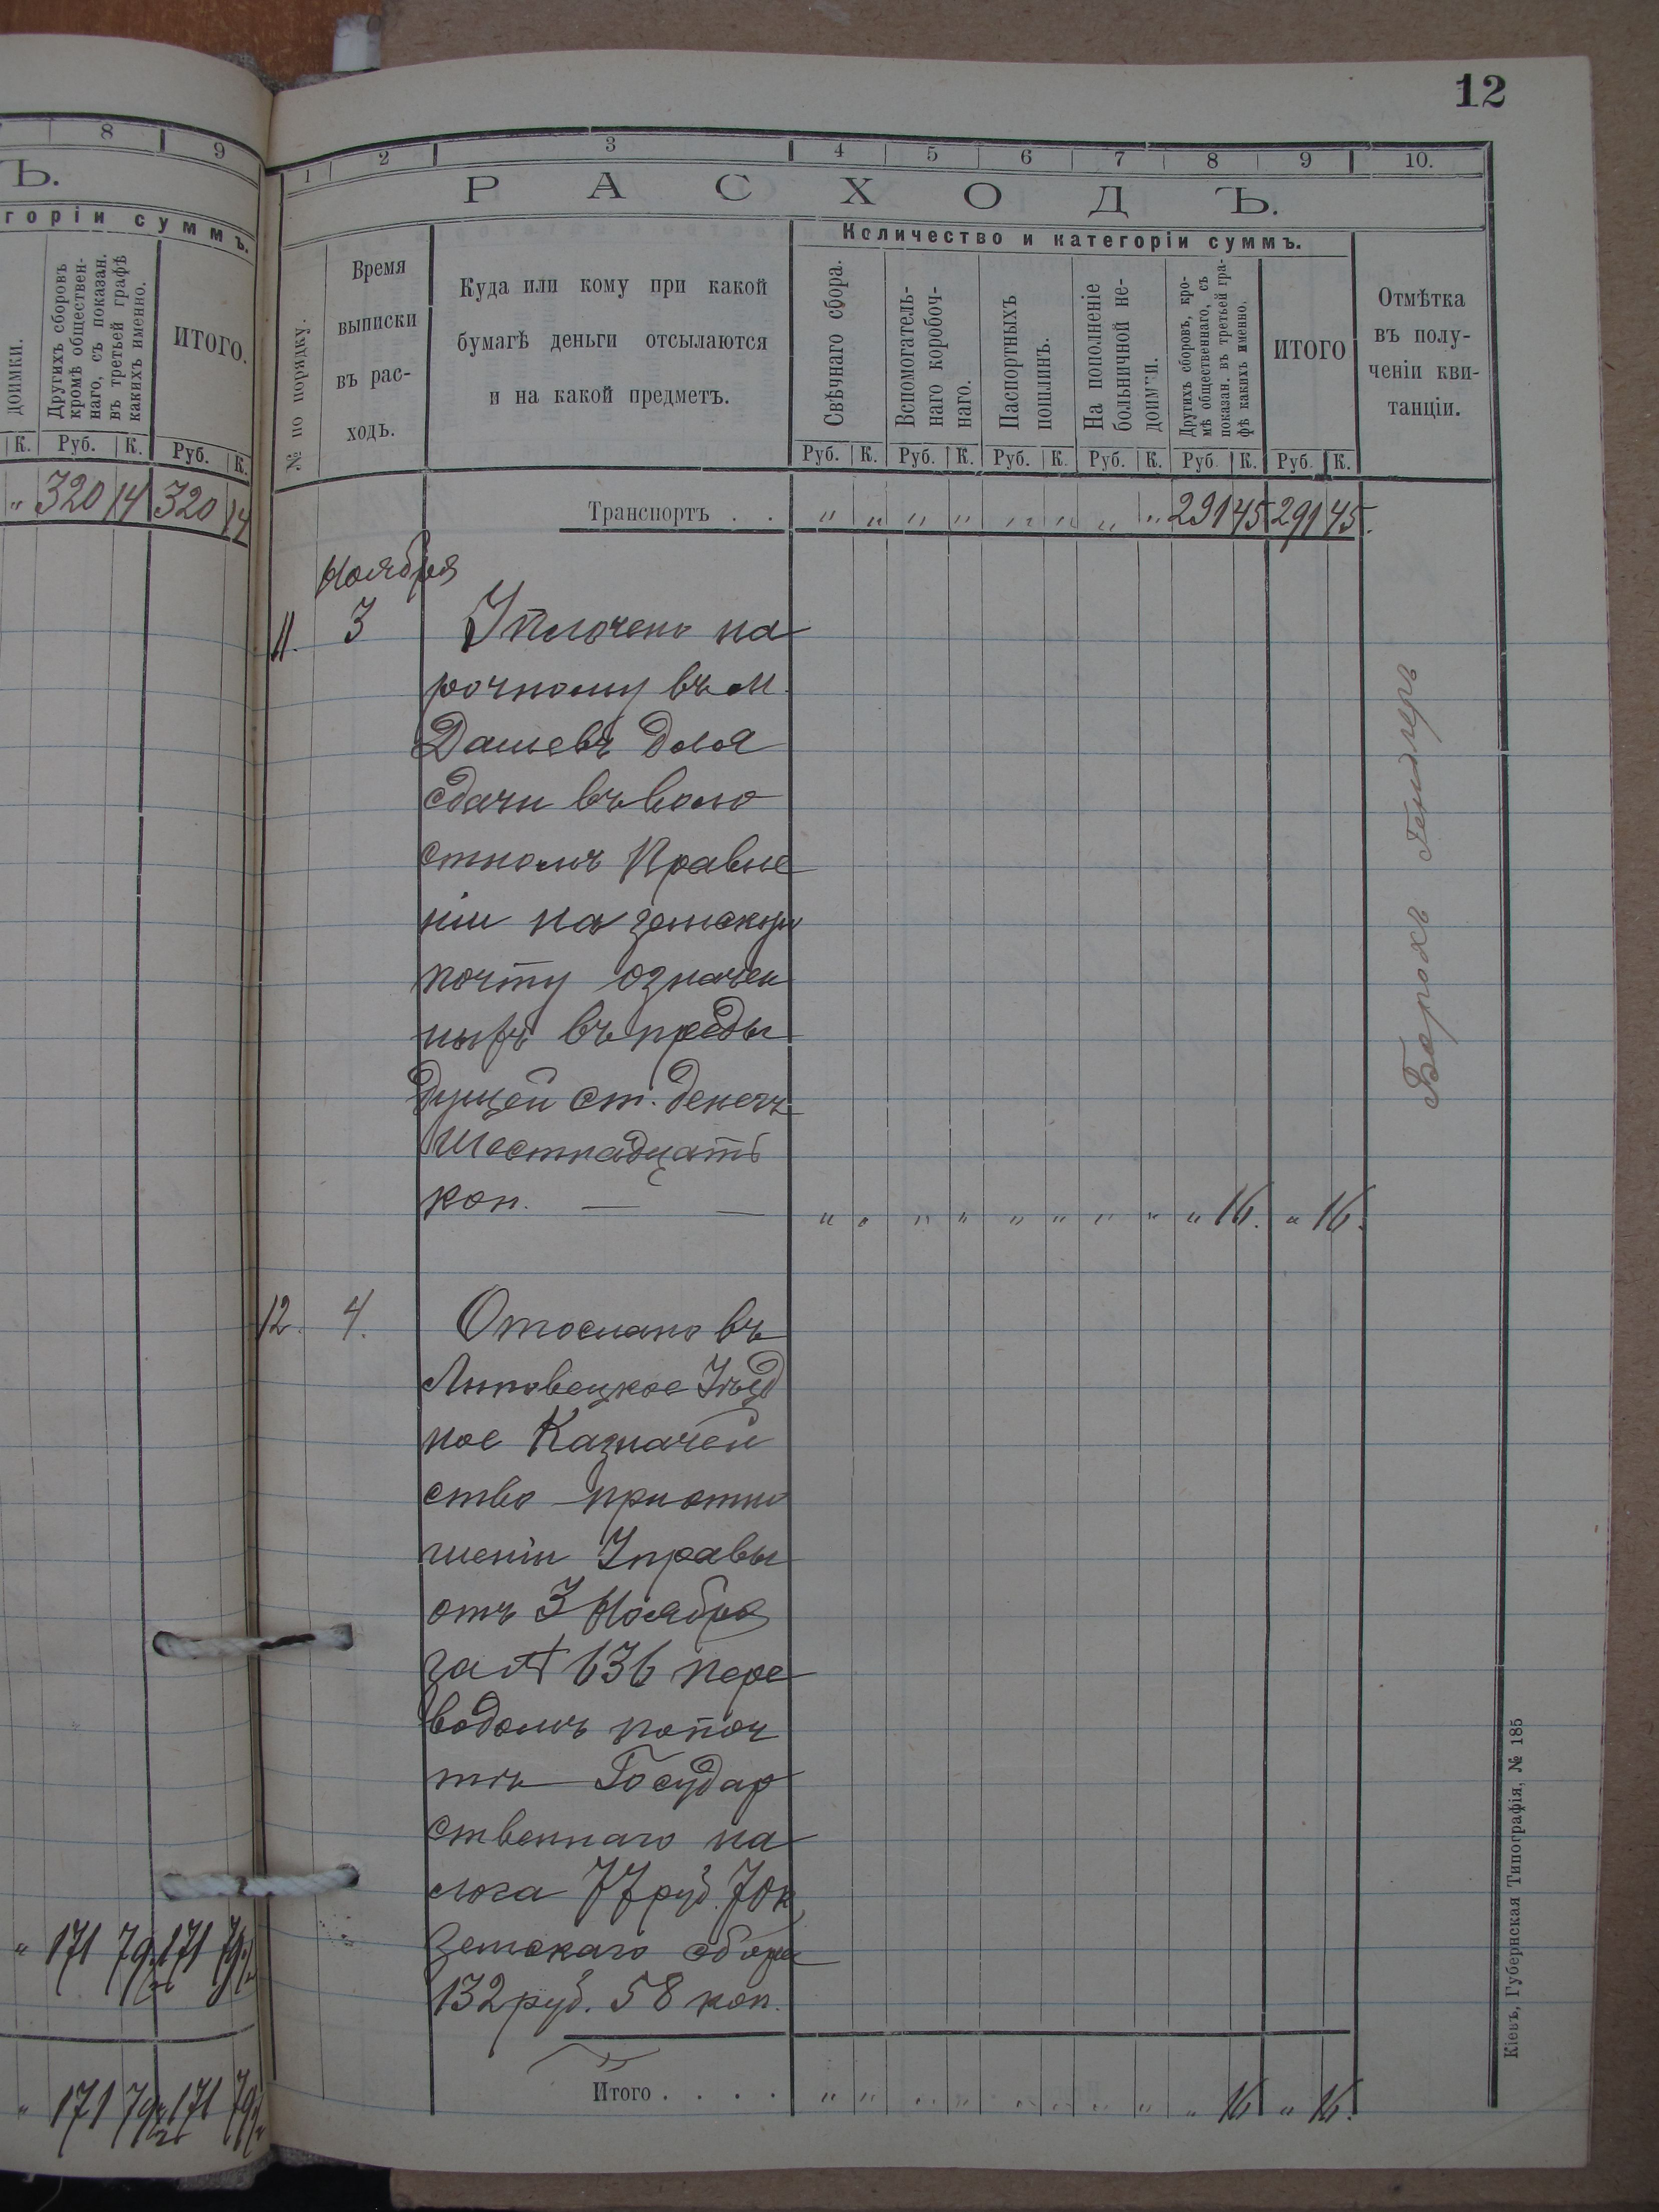 12
8 9
Ъ.
горіи суммъ.
доимки.
Другихъ сборовъ
кромѣ обществен-
наго, съ показан.
въ третьей графѣ
какихъ именно.
ИТОГО.
К. Руб. К. Руб. К.
„ 320 14 320 14
„ 171 79½ 171 79½
„ 171 79½ 171 79½
1 2 3 4 5 6 7 8 9 10.
РАСХОДЪ.
Количество и категоріи суммъ.
№ по порядку.
Время
выписки
въ рас-
ходъ.
Куда или кому при какой
бумагѣ деньги отсылаются
и на какой предметъ.
Свѣчнаго сбора.
Вспомогатель-
наго коробоч-
наго.
Паспортныхъ
пошлинъ.
На пополненіе
больничной не-
доимки.
Другихъ сборовъ, кро-
мѣ общественнаго, съ
показан. въ третьей гра-
фѣ какихъ именно.
ИТОГО
Отмѣтка
въ полу-
ченіи кви-
танціи.
Руб. К. Руб. К. Руб. К. Руб. К. Руб. К. Руб. К.
Транспортъ . . „ „ „ „ „ „ „ „ 291 45 291 45.
Ноября
11. 3 Уплочено на
рочному въ м.
Дашевъ для
сдачи въ воло
стномъ Правле
ніи на земскую
почту означен
ныхъ въ преды
дущей ст. денегъ
Шестнадцать
коп. — — „ „ „ „ „ „ „ „ „ 16. „ 16.
Борохъ
12. 4. Отослано въ
Липовецкое Уѣзд
ное Казначей
ство при отно
шеніи Управы
отъ 3 Ноября
за № 636 пере
водомъ по поч
тѣ Государ
ственнаго на
лога 77 руб. 70 к
Земскаго сбора
132 руб. 58 коп.
Итого . . . . „ „ „ „ „ „ „ „ „ 16 „ 16.
Кіевъ, Губернская Типографія, № 185